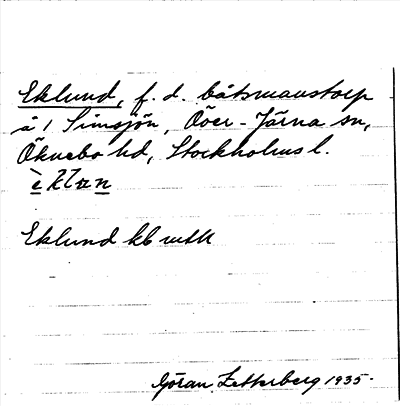 Eklund, f. d. båtsmanstorp
å 1 Simsjön, Över-Järna sn,
Öknebo hd, Stockholms l.
Eklund kb mtk
Göran Zetterberg 1935.